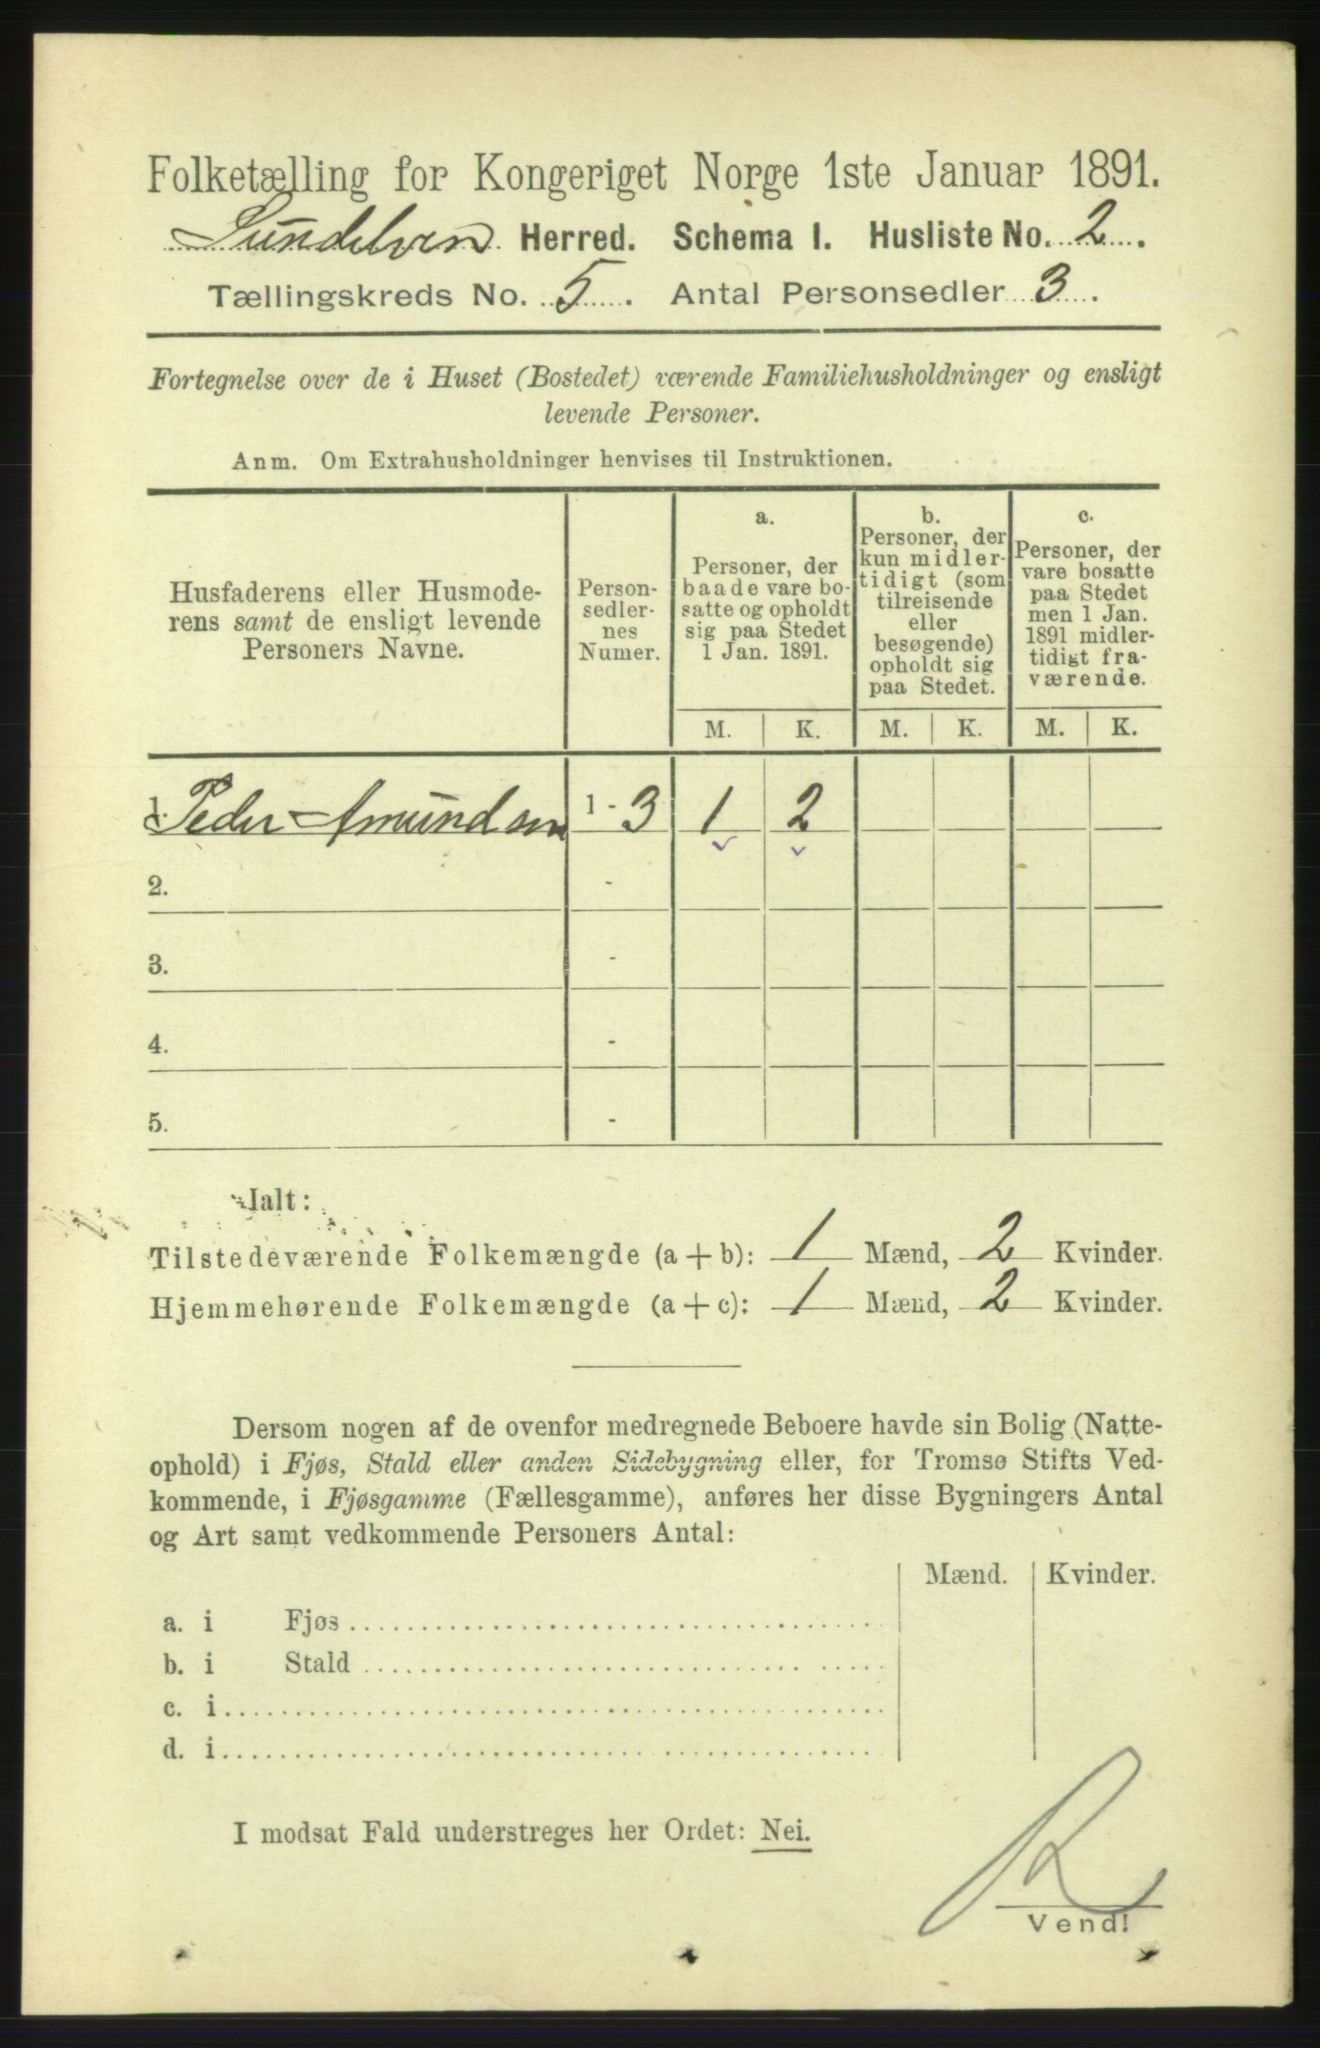 Folketælling for Kongeriget Norge 1ste Januar 1891.
Sundelven Herred. Schema I. Husliste No. 2.
Tællingskreds No. 5. Antal Personsedler 3.
Fortegnelse over de i Huset (Bostedet) værende Familiehusholdninger og ensligt
levende Personer.
Anm. Om Extrahusholdninger henvises til Instruktionen.
Husfaderens eller Husmode-
rens samt de ensligt levende
Personers Navne.
Person-
sedler-
nes
Numer.
a.
Personer, der
baade vare bo-
satte og opholdt
sig paa Stedet
1 Jan. 1891.
b.
Personer, der
kun midler-
tidigt (som
tilreisende
eller
besøgende)
opholdt sig
paa Stedet.
c.
Personer, der
vare bosatte
paa Stedet
men 1 Jan.
1891 midler-
tidigt fra-
værende.
M. K. M. K. M. K.
1. Peder Amundsen 1 - 3 1 2
2. -
3. -
4. -
5. -
Ialt:
Tilstedeværende Folkemængde (a + b): 1 Mænd, 2 Kvinder.
Hjemmehørende Folkemængde (a + c): 1 Mænd, 2 Kvinder.
Dersom nogen af de ovenfor medregnede Beboere havde sin Bolig (Natte-
ophold) i Fjøs, Stald eller anden Sidebygning eller, for Tromsø Stifts Ved-
kommende, i Fjøsgamme (Fællesgamme), anføres her disse Bygningers Antal
og Art samt vedkommende Personers Antal:
Mænd. Kvinder.
a. i Fjøs
b. i Stald
c. i
d. i
I modsat Fald understreges her Ordet: Nei.
R
Vend!